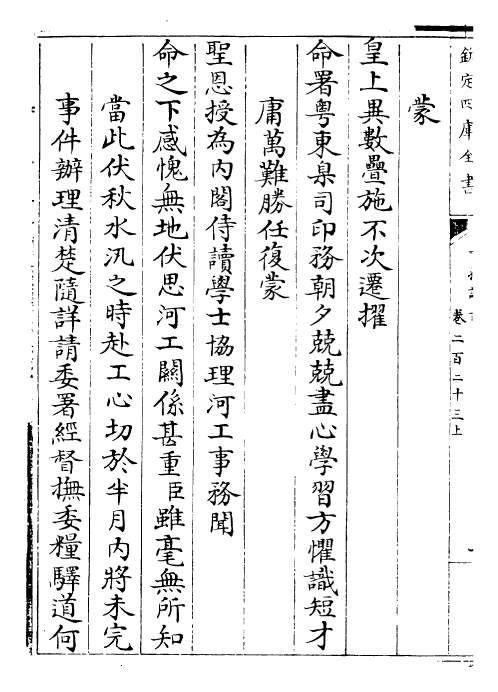 欽定四庫全書
卷二百二十三上
蒙
皇上異數疊施不次遷擢
命署粤東臬司印務朝夕兢兢盡心學習方懼識短才
庸萬難勝任復蒙
聖恩授為内閣侍讀學士協理河工事務聞
命之下感愧無地伏思河工關係甚重臣雖毫無所知
當此伏秋水汛之時赴工心切於半月内將未完
事件辦理清楚隨詳請委署經督撫委糧驛道何